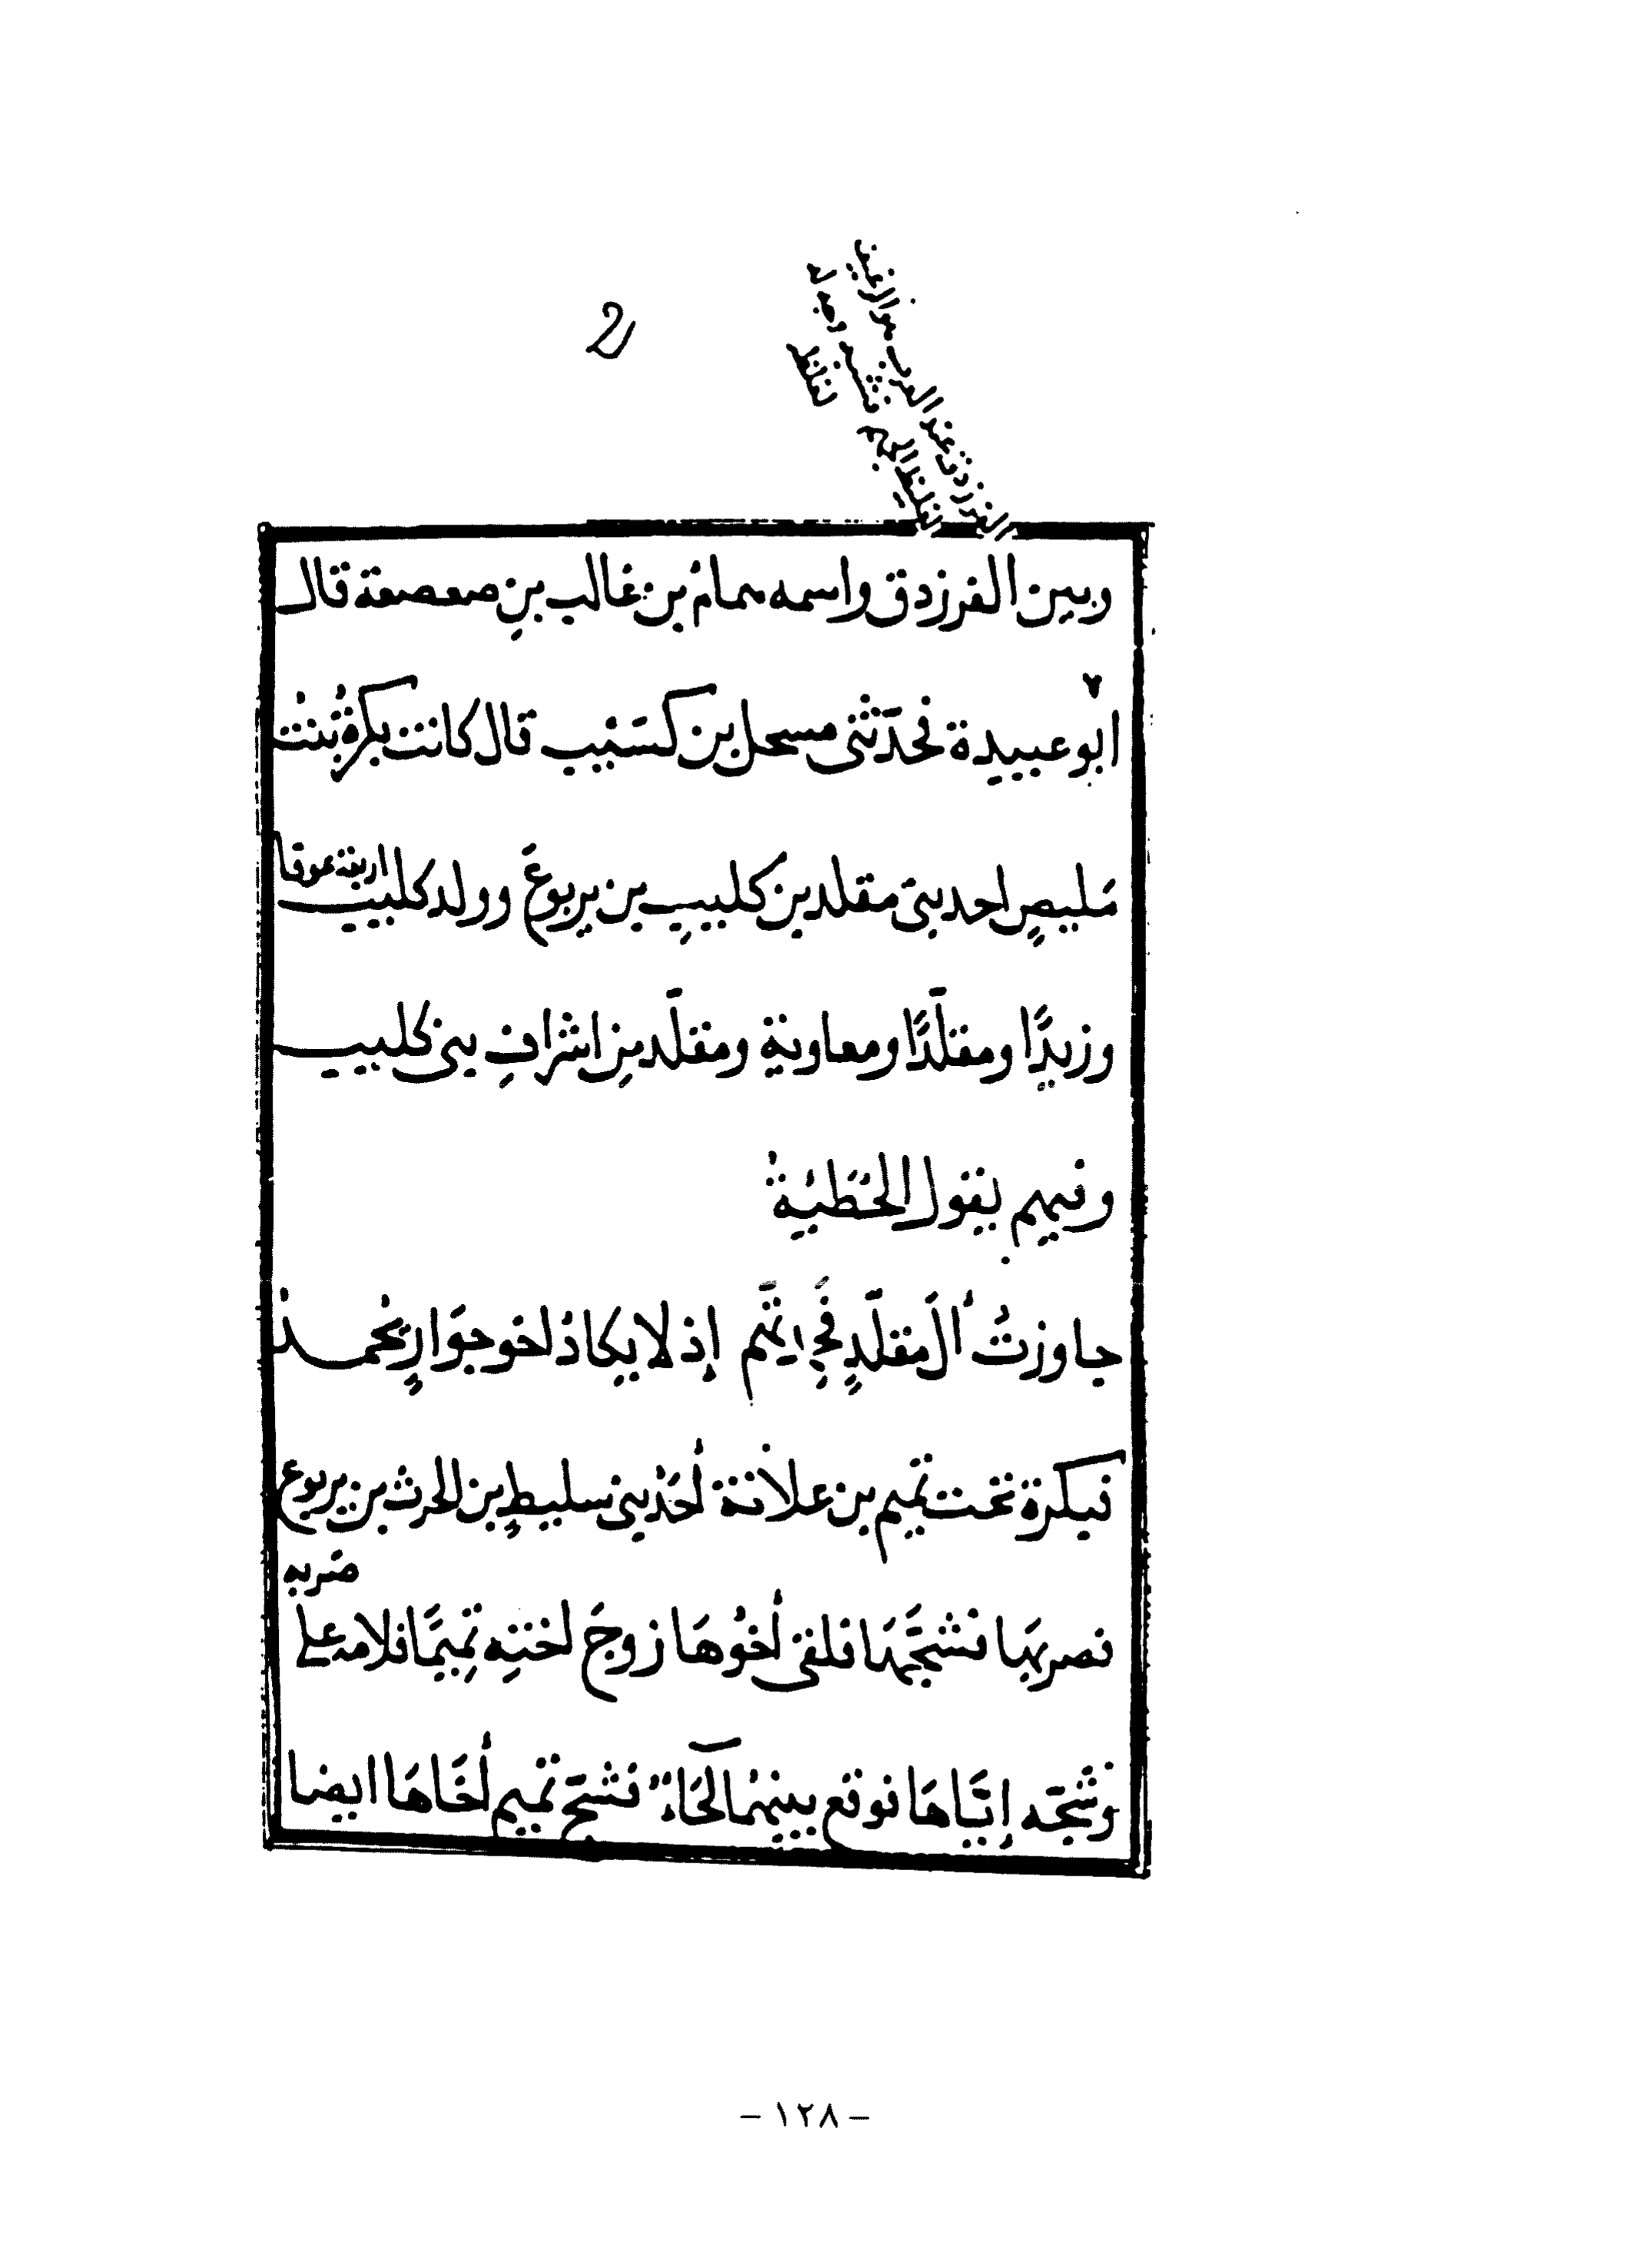 وبين الفرزدق واسمه همامُ بن غالب بنِ صعصعة قال
ابو عبيدة فحدّثني مسحل بن كسَيْبٍ قال كانت بكرةُ بنتُ
مَليصٍ احد بني مقلد بن كليبٍ بن يربوعَ وولد كليب اربعة عوفا
وزيدًا ومقلّدًا ومعاوية ومقلّد مِن اشرافِ بني كليب
وفيهم يقول الحُطَيئةُ
جاورْتُ آلَ مقلّدٍ فحمِدتهم إذ لا يكادُ اخو جوَارٍ يحمدُ
فبكرة تحت تميم بن علاثة أحَدْ بني سليطٍ بن الحرث بن يربوع
ضَربه
فضربهَا فشجَّهَا فلقى أخُوهَا زوجَ اختِه تمِيمًا فلامه على
وشَجّه إيّاهَا فوقع بينهمَا لحَآءٌ فشجّ تميم أخَاهَا ايضا
- ١٢٨ -